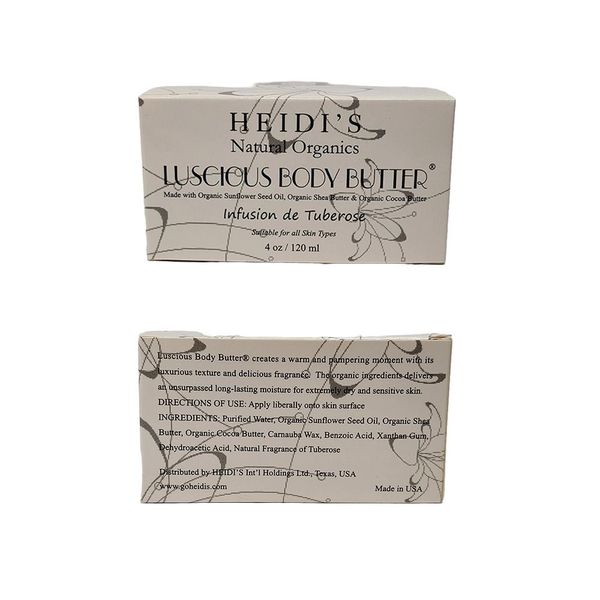 HEIDI'S
Natural Organics
LUSCIOUS BODY BUTTER®
Made with Organic Sunflower Seed Oil, Organic Shea Butter & Organic Cocoa Butter
Infusion de Tuberose
Suitable for all Skin Types
4 oz / 120 ml
Luscious Body Butter® creates a warm and pampering moment with its
luxurious texture and delicious fragrance. The organic ingredients delivers
an unsurpassed long-lasting moisture for extremely dry and sensitive skin.
DIRECTIONS OF USE: Apply liberally onto skin surface
INGREDIENTS: Purified Water, Organic Sunflower Seed Oil, Organic Shea
Butter, Organic Cocoa Butter, Carnauba Wax, Benzoic Acid, Xanthan Gum,
Dehydroacetic Acid, Natural Fragrance of Tuberose
Distributed by HEIDI'S Int'l Holdings Ltd., Texas, USA
www.goheidis.com Made in USA